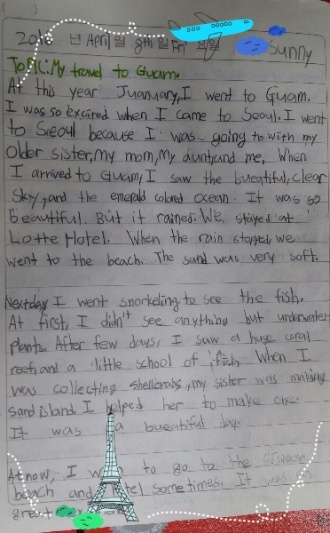 ( )
2016 년 April 월 8th 일 Fri 요일 Sunny
Topic: My travel to Guam.
At this year Juanuary, I went to Guam.
I was so excired when I came to Seoul. I went
to Seoul because I was going to with my
older sister, My mom, My aunt, and me. When
I arrived to Guam, I saw the bueatiful, clear
sky, and the emerald colored ocean. It was so
beautiful. But it rained. We stayes at
Lotte Hotel. When the rain stopped, we
went to the beach. The sand was very soft.
Nextday I went snorkeling to see the fish.
At first, I didn't see anything but underwater
plants. After few days, I saw a huge coral
reef, and a little school of fish. When I
was collecting, my sister was making
sand island I helped her to make
It was a bueatiful day.
At now, I to go to the
beach and sometimes. It
great